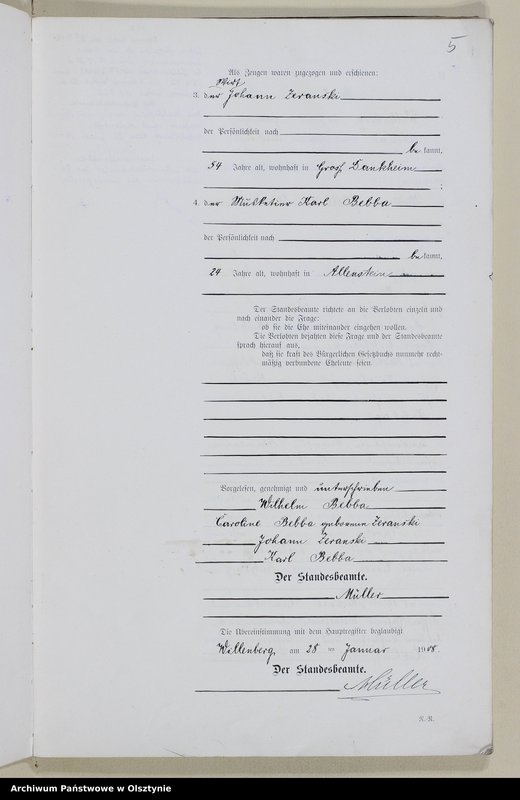 5
Als Zeugen waren zugezogen und erschienen:
Wirt
3. der Johann Zeranski
der Persönlichkeit nach
be kannt,
54 Jahre alt, wohnhaft in Gross Dankheim
;
4. der Musketier Karl Bebba
der Persönlichkeit nach
be kannt,
24 Jahre alt, wohnhaft in Allenstein
Der Standesbeamte richtete an die Verlobten einzeln und
nach einander die Frage:
ob sie die Ehe miteinander eingehen wollen.
Die Verlobten bejahten diese Frage und der Standesbeamte
sprach hierauf aus,
daß sie kraft des Bürgerlichen Gesetzbuchs nunmehr recht-
mäßig verbundene Eheleute seien.
Vorgelesen, genehmigt und unterschrieben
Wilhelm Bebba
Caroline Bebba geborene Zeranski
Johann Zeranski
Karl Bebba
Der Standesbeamte.
Müller
Die Übereinstimmung mit dem Hauptregister beglaubigt
Willenberg, am 28 ten Januar 1908
Der Standesbeamte.
Müller
N.-R.
Archiwum Państwowe w Olsztynie